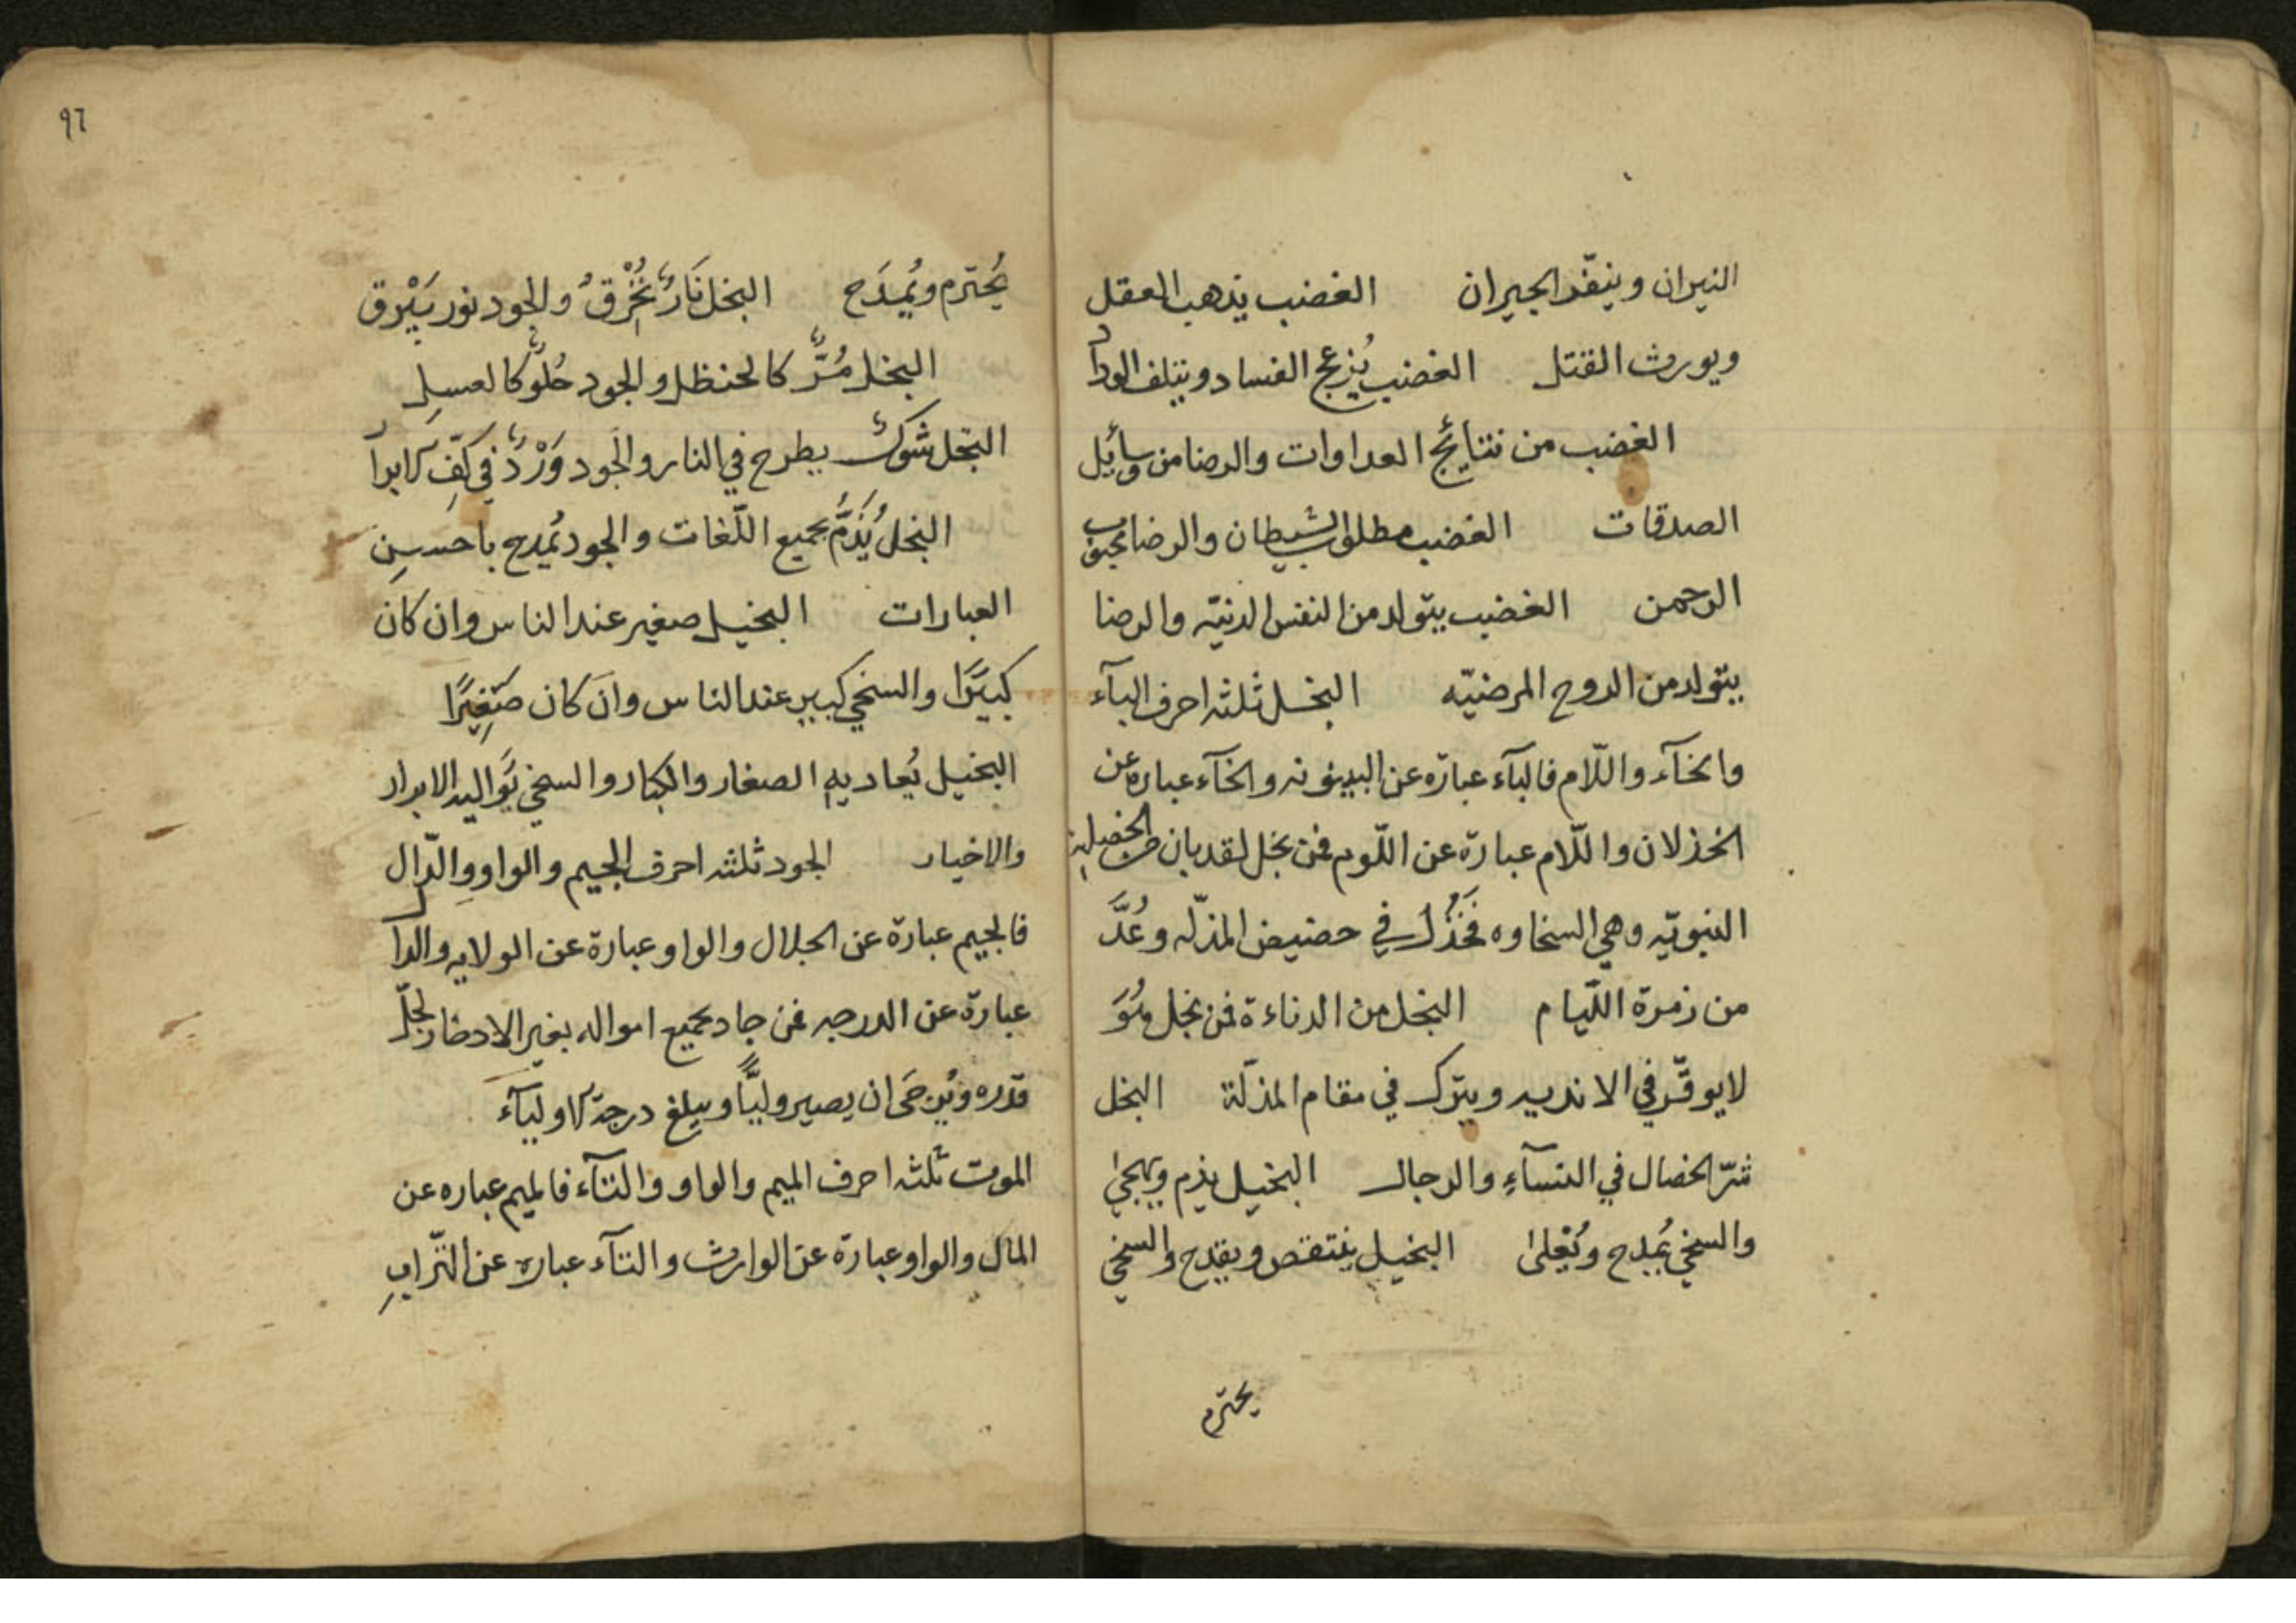 النيران وينفّر الجيران الغضب يذهب العقل
ويورث القتل الغضب يُزعج الفساد ويتلف الوداد
الغضب من نتائج العداوات والرضا من وسائل
الصدقات الغضب مطلوب الشيطان والرضا محبوب
الرحمن الغضب يتولد من النفس الدنيّه والرضا
يتولد من الروح المرضيّه البخل ثلثه احرف البآء
والخآء واللّام فالبآء عبارة عن البينونه والخآء عبارة عن
الخذلان واللّام عبارة عن اللّوم فمن بخل لقد بان عن الخصلة
النبويّه وهي السخاوه فَخُذل في حضيض المذلّه وعُدَّ
من زمرة اللّيام البخل من الدناءة فمن بخل
لا يوقّر في الاندية ويترك في مقام المذلّة البخل
شرّ الخصال في النسآءِ والرجال البخيل يذم ويهجى
والسخي يُمدح ويُعلى البخيل ينتقص ويقدح والسخي
يحترم
٩٦
يُحترم ويُمدَح البخل نَارٌ تُحْرِقُ والجود نور يَبْرق
البخل مُرٌّ كالحنظل والجود حُلوٌ كالعسلِ
البخل شوكٌ يطرح في النار والجود وَرْدٌ في كفِّ الابرار
البخلُ يُذَمُّ بجميع اللّغات والجود يُمدح باحسنِ
العبارات البخيل صغير عند الناس وان كان
كبيرًا والسخي كبير عند الناس وان كان صَغِيرًا
البخيل يُعاديهِ الصغار والكبار والسخي يُواليه الابرار
والاخيار الجود ثلثه احرف الجيم والواو والدّال
فالجيم عبارة عن الجلال والواو عبارة عن الولايه والدال
عبارة عن الدرجه فمن جاد بجميع امواله بغير الادخار لجلّ
قدره ويُرجَى ان يصير وليًّا ويبلغ درجة الاوليآء
الموت ثلثه احرف الميم والواو والتآء فالميم عباره عن
المال والواو عبارة عن الوارث والتآء عبارة عن التّرابِ